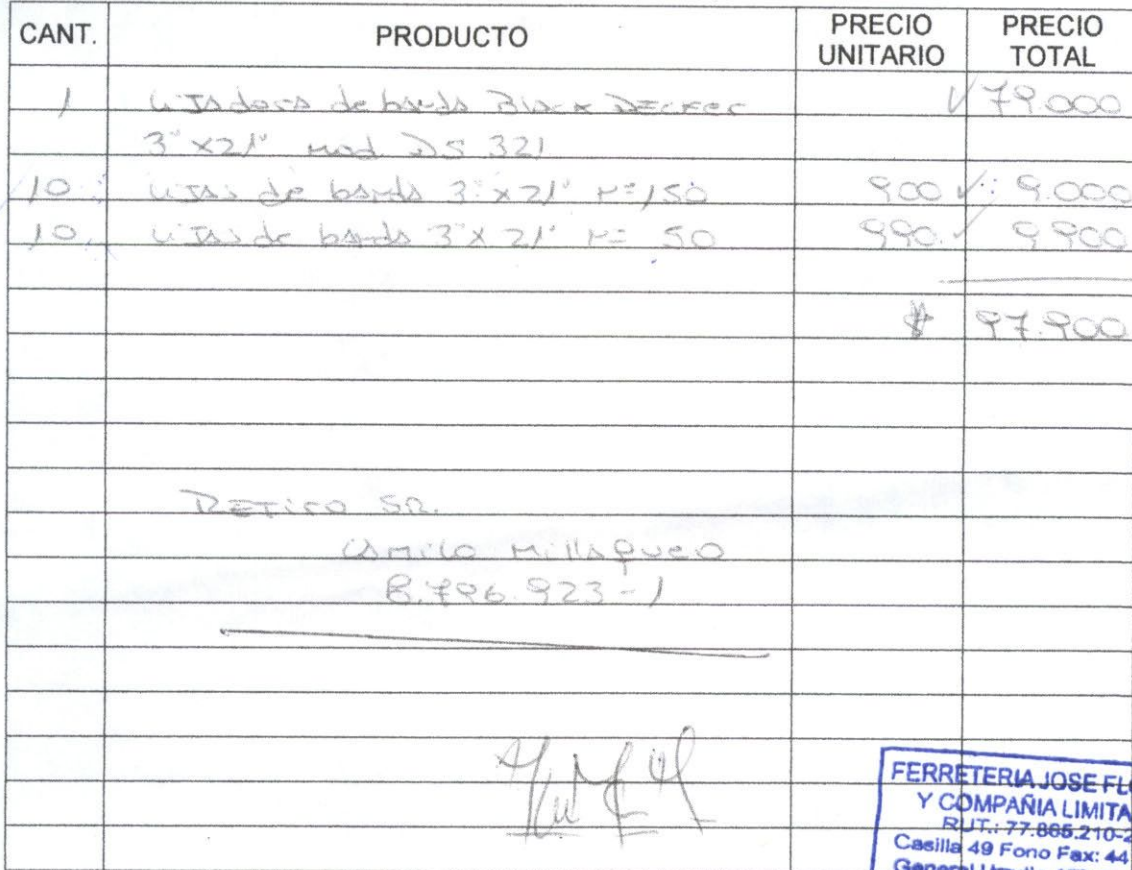 CANT. PRODUCTO PRECIO UNITARIO PRECIO TOTAL
1 Lijadora de banda Black Decker 79.000
3" x 21" mod. DS 321
10 Lijas de banda 3" x 21" Nº 150 900 9.000
10 Lijas de banda 3" x 21" Nº 50 990 9.900
$ 97.900
Retiro SR.
Camilo Millaqueo
8.796.923-1
FERRETERIA JOSE FL
Y COMPAÑIA LIMITA
RUT.: 77.865.210-2
Casilla 49 Fono Fax: 44
General